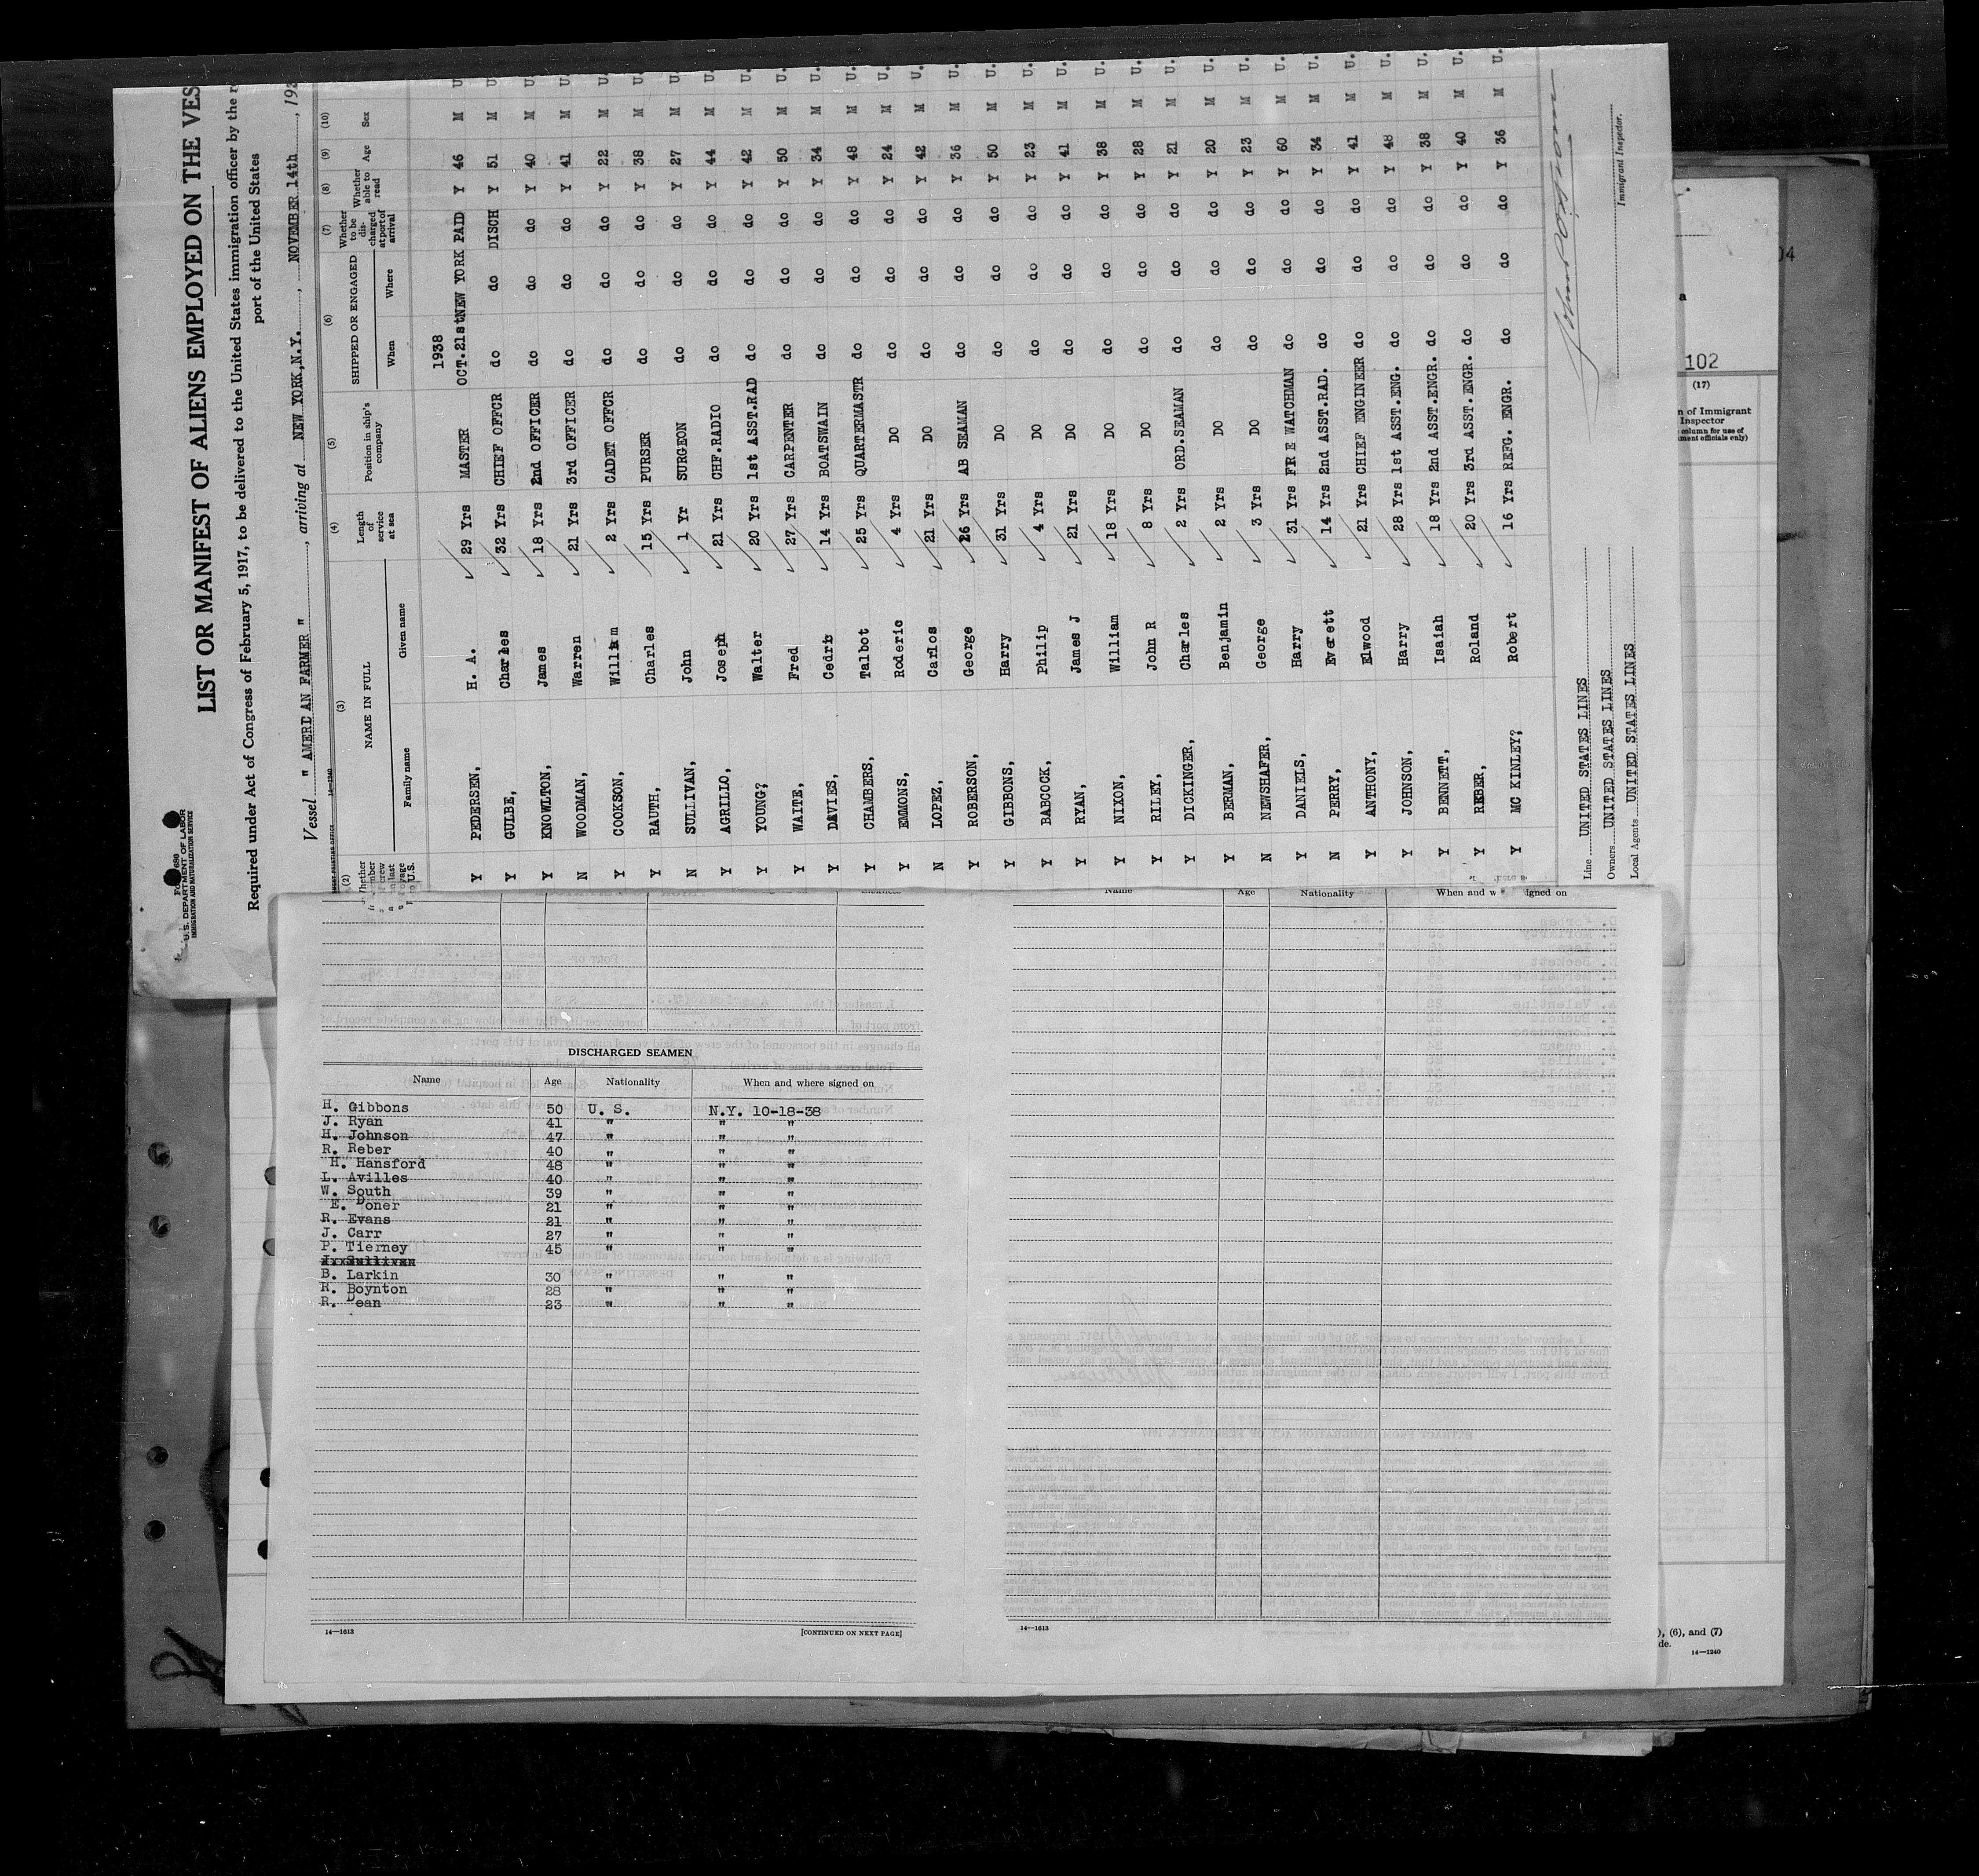 FORM 680
U. S. DEPARTMENT OF LABOR
IMMIGRATION AND NATURALIZATION SERVICE
LIST OR MANIFEST OF ALIENS EMPLOYED ON THE VES
Required under Act of Congress of February 5, 1917, to be delivered to the United States immigration officer by the
port of the United States
Vessel " AMERICAN FARMER ", arriving at NEW YORK,N.Y., NOVEMBER 14th, 193
(2) (3) (4) (5) (6) (7) (8) (9) (10)
NAME IN FULL Length of service at sea Position in ship's company SHIPPED OR ENGAGED Whether to be discharged at port of arrival Whether able to read Age Sex
Family name Given name When Where
1938
Y PEDERSEN, H. A. 29 Yrs MASTER OCT.21st NEW YORK PAID Y 46 M U.
Y GULBE, Charles 32 Yrs CHIEF OFFCR do do DISCH Y 51 M U.
Y KNOWLTON, James 18 Yrs 2nd OFFICER do do do Y 40 M U.
N WOODMAN, Warren 21 Yrs 3rd OFFICER do do do Y 41 M U.
Y COOKSON, William 2 Yrs CADET OFFCR do do do Y 22 M U.
Y RAUTH, Charles 15 Yrs PURSER do do do Y 38 M U.
N SULLIVAN, John 1 Yr SURGEON do do do Y 27 M U.
Y AGRILLO, Joseph 21 Yrs CHF.RADIO do do do Y 44 M U.
Y YOUNG? Walter 20 Yrs 1st ASST.RAD do do do Y 42 M U.
Y WAITE, Fred 27 Yrs CARPENTER do do do Y 50 M U.
Y DAVIES, Cedric 14 Yrs BOATSWAIN do do do Y 34 M U.
Y CHAMBERS, Talbot 25 Yrs QUARTERMASTR do do do Y 48 M U.
Y EMMONS, Roderic 4 Yrs DO do do do Y 24 M U.
N LOPEZ, Carlos 21 Yrs DO do do do Y 42 M U.
Y ROBERSON, George 26 Yrs AB SEAMAN do do do Y 36 M U.
Y GIBBONS, Harry 31 Yrs DO do do do Y 50 M U.
Y BABCOCK, Philip 4 Yrs DO do do do Y 23 M U.
Y RYAN, James J 21 Yrs DO do do do Y 41 M U.
Y NIXON, William 18 Yrs DO do do do Y 38 M U.
Y RILEY, John R 8 Yrs DO do do do Y 28 M U.
Y DICKINGER, Charles 2 Yrs ORD.SEAMAN do do do Y 21 M U.
Y BERMAN, Benjamin 2 Yrs DO do do do Y 20 M U.
N NEWSHAFER, George 3 Yrs DO do do do Y 23 M U.
Y DANIELS, Harry 31 Yrs FIRE WATCHMAN do do do Y 60 M U.
N PERRY, Everett 14 Yrs 2nd ASST.RAD. do do do Y 34 M U.
Y ANTHONY, Elwood 21 Yrs CHIEF ENGINEER do do do Y 41 M U.
Y JOHNSON, Harry 28 Yrs 1st ASST.ENG. do do do Y 48 M U.
Y BENNETT, Isaiah 18 Yrs 2nd ASST.ENGR. do do do Y 38 M U.
Y REBER, Roland 20 Yrs 3rd ASST.ENGR. do do do Y 40 M U.
Y MC KINLEY? Robert 16 Yrs REFG. ENGR. do do do Y 36 M U.
Line UNITED STATES LINES
Owners UNITED STATES LINES
Local Agents UNITED STATES LINES
Immigrant Inspector.
102
(17)
n of Immigrant
Inspector
column for use of
ment officials only)
Name Age Nationality When and w signed on
DISCHARGED SEAMEN
Name Age Nationality When and where signed on
H. Gibbons 50 U. S. N.Y. 10-18-38
J. Ryan 41 " " "
H. Johnson 47 " " "
R. Reber 40 " " "
H. Hansford 48 " " "
L. Avilles 40 " " "
W. South 39 " " "
E. Doner 21 " " "
R. Evans 21 " " "
J. Carr 27 " " "
P. Tierney 45 " " "
B. Larkin 30 " " "
R. Boynton 28 " " "
R. Dean 23 " " "
14—1613 [CONTINUED ON NEXT PAGE]
14—1613
), (6), and (7)
de.
14—1240